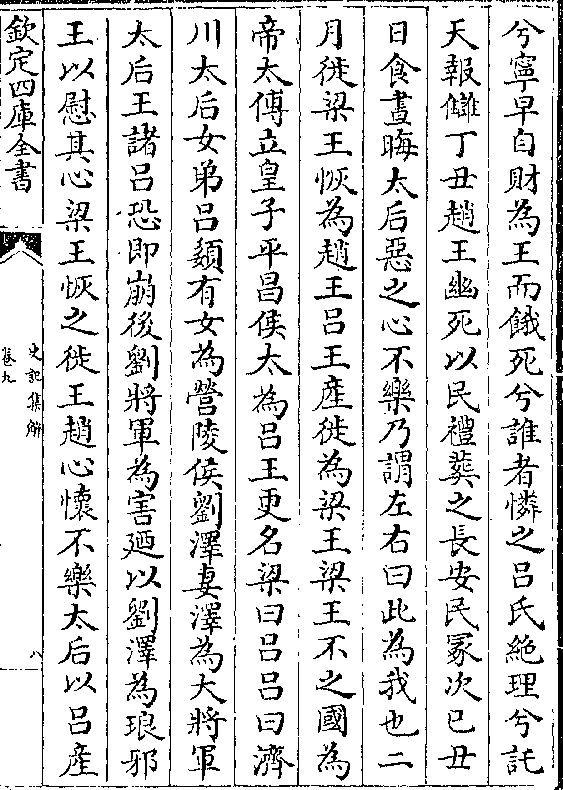 兮寧早自財為王而餓死兮誰者憐之吕氏絶理兮託
天報讎丁丑趙王幽死以民禮葬之長安民冢次已丑
日食晝晦太后惡之心不樂乃謂左右曰此為我也二
月徙梁王恢為趙王吕王産徙為梁王梁王不之國為
帝太傅立皇子平昌侯太為吕王更名梁曰吕吕曰濟
川太后女弟吕嬃有女為營陵侯劉澤妻澤為大將軍
太后王諸吕恐即崩後劉將軍為害廼以劉澤為琅邪
王以慰其心梁王恢之徙王趙心懷不樂太后以吕産
欽定四庫全書
史記集解
卷九
八